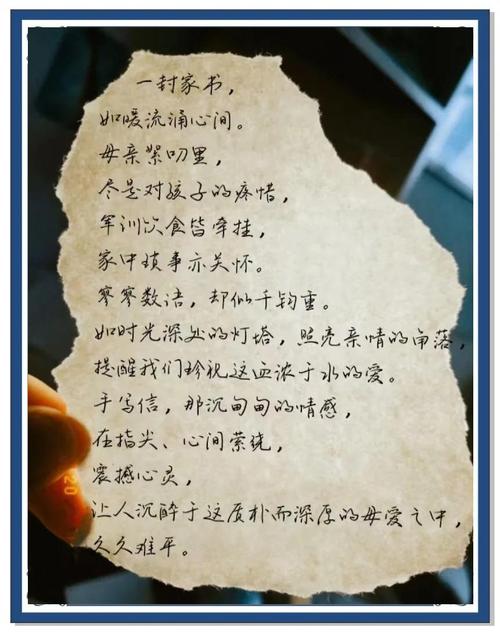 一封家书，
如暖流涌心间。
母亲絮叨里，
尽是对孩子的疼惜，
军训饮食皆牵挂，
家中琐事亦关怀。
寥寥数语，却似千钧重。
如时光深处的灯塔，照亮亲情的角落，
提醒我们珍视这血浓于水的爱。
手写信，那沉甸甸的情感，
在指尖、心间萦绕，
震撼心灵，
让人沉醉于这质朴而深厚的母爱之中，
久久难平。
20